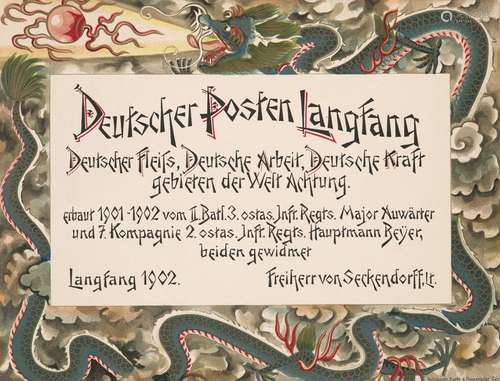 Deutscher Posten Langfang
Deutscher Fleifs, Deutsche Arbeit, Deutsche Kraft
gebieten der Welt Achtung.
erbaut 1901-1902 vom II. Batl. 3. ostas. Inft. Regts. Major Auwärter
und 7. Kompagnie 2. ostas. Inft. Regts. Hauptmann Beÿer,
beiden gewidmet
Langfang 1902. Freiherr von Seckendorff, Lt.